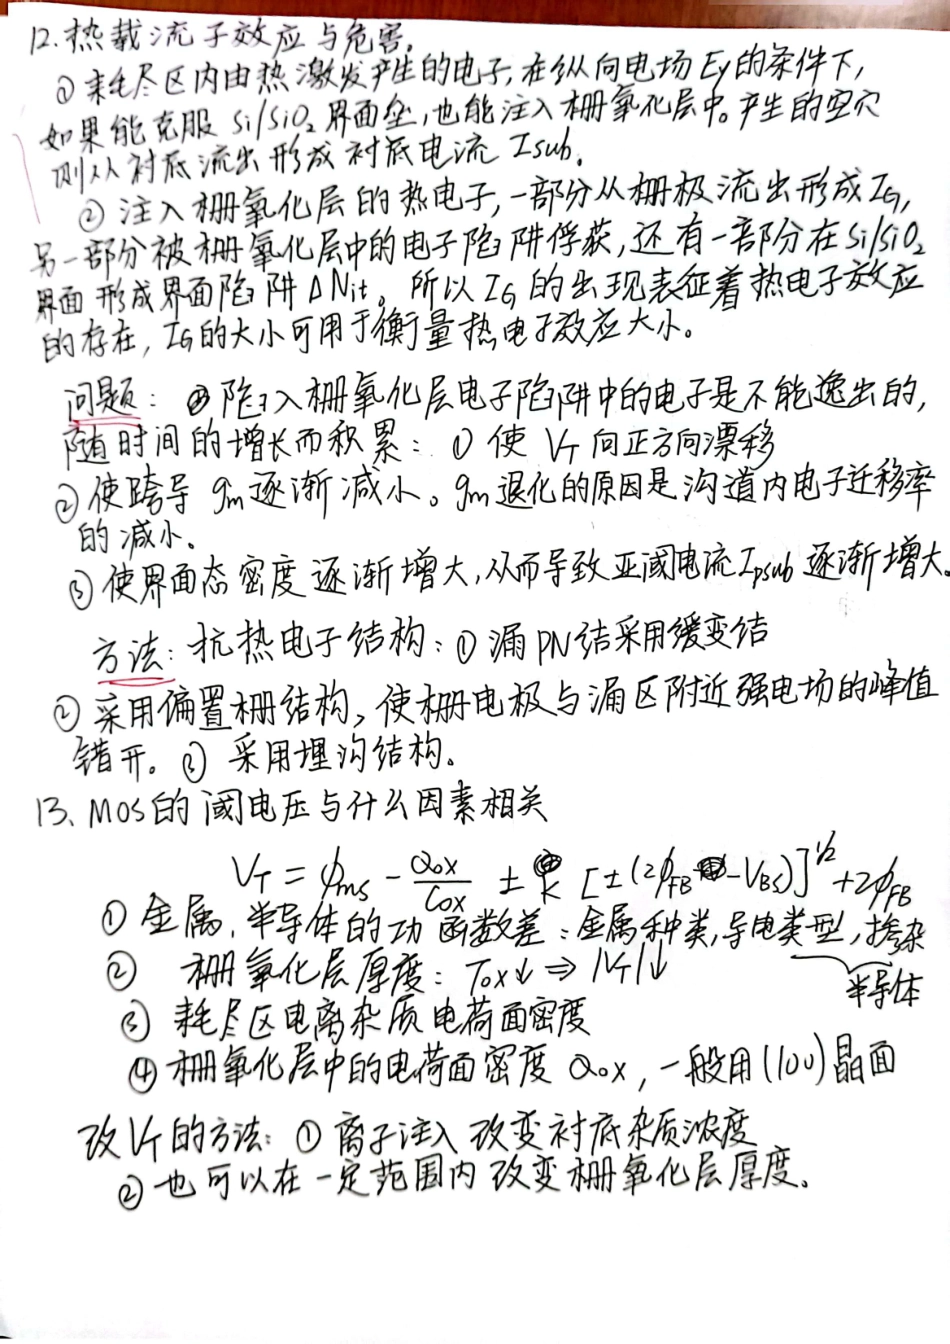 12.热载流子效应与危害。
①耗尽区内由热激发产生的电子,在纵向电场Ey的条件下,
如果能克服Si/SiO₂界面垒,也能注入栅氧化层中。产生的空穴
则从衬底流出形成衬底电流Isub。
②注入栅氧化层的热电子,一部分从栅极流出形成IG,
另一部分被栅氧化层中的电子陷阱俘获,还有一部分在Si/SiO₂
界面形成界面陷阱ΔNit。所以IG的出现表征着热电子效应
的存在,IG的大小可用于衡量热电子效应大小。
问题: 陷入栅氧化层电子陷阱中的电子是不能逸出的,
随时间的增长而积累:①使VT向正方向漂移
②使跨导gm逐渐减小。gm退化的原因是沟道内电子迁移率
的减小。
③使界面态密度逐渐增大,从而导致亚阈电流Ipsub逐渐增大。
方法:抗热电子结构:①漏PN结采用缓变结
②采用偏置栅结构,使栅电极与漏区附近强电场的峰值
错开。③采用埋沟结构。
13、MOS的阈电压与什么因素相关
VT = φms - Qox/Cox ± K [±(2φFB - VBS)]^1/2 + 2φFB
①金属.半导体的功函数差:金属种类,导电类型,掺杂
半导体
② 栅氧化层厚度:Tox↓⇒|VT|↓
③耗尽区电离杂质电荷面密度
④栅氧化层中的电荷面密度Qox,一般用(100)晶面
改VT的方法:①离子注入改变衬底杂质浓度
②也可以在一定范围内改变栅氧化层厚度。